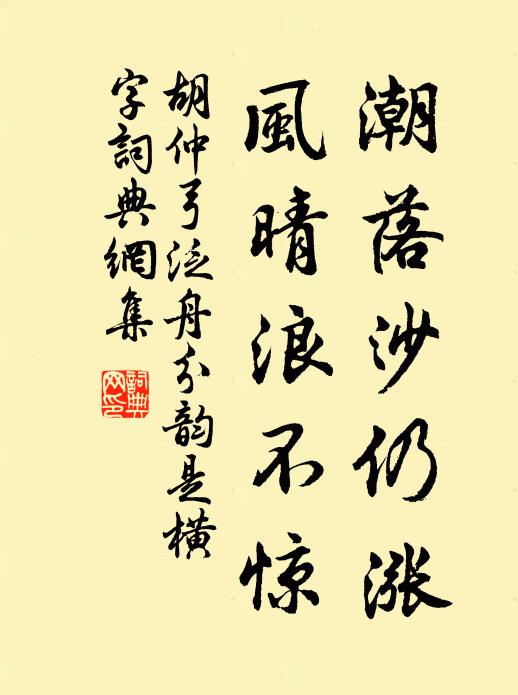 潮落沙仍漲
風晴浪不惊
胡仲弓泛舟分韵是橫
字詞典網集
詞典網印